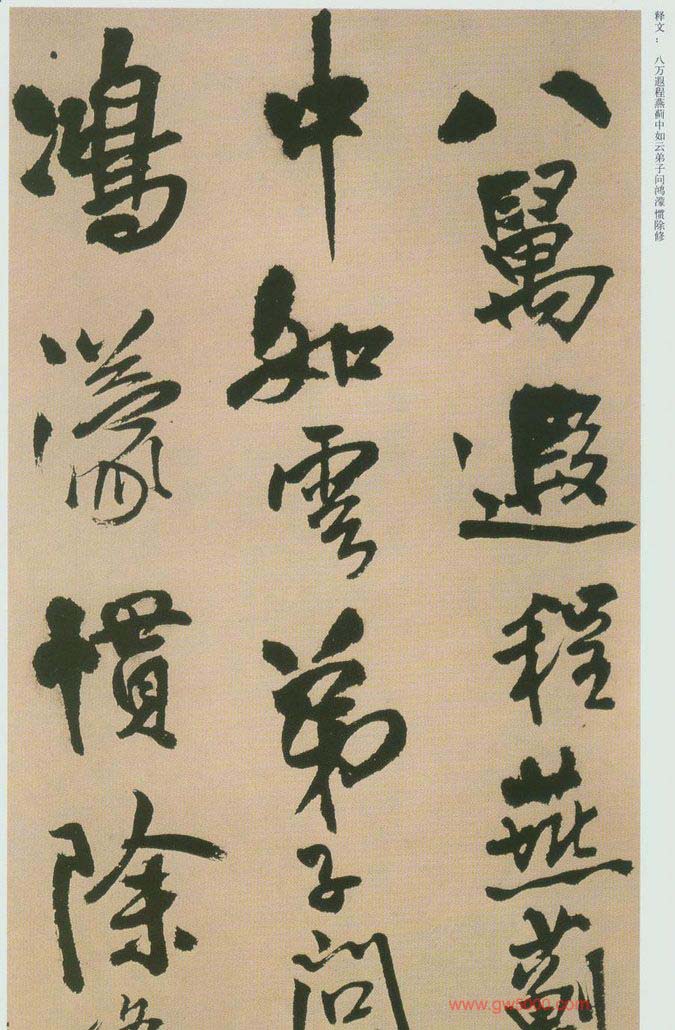 释文： 八万遐程燕蓟中如云弟子问鸿濛惯除修
八萬遐程燕薊
中如雲弟子問
鴻濛慣除修
www.gw5000.com